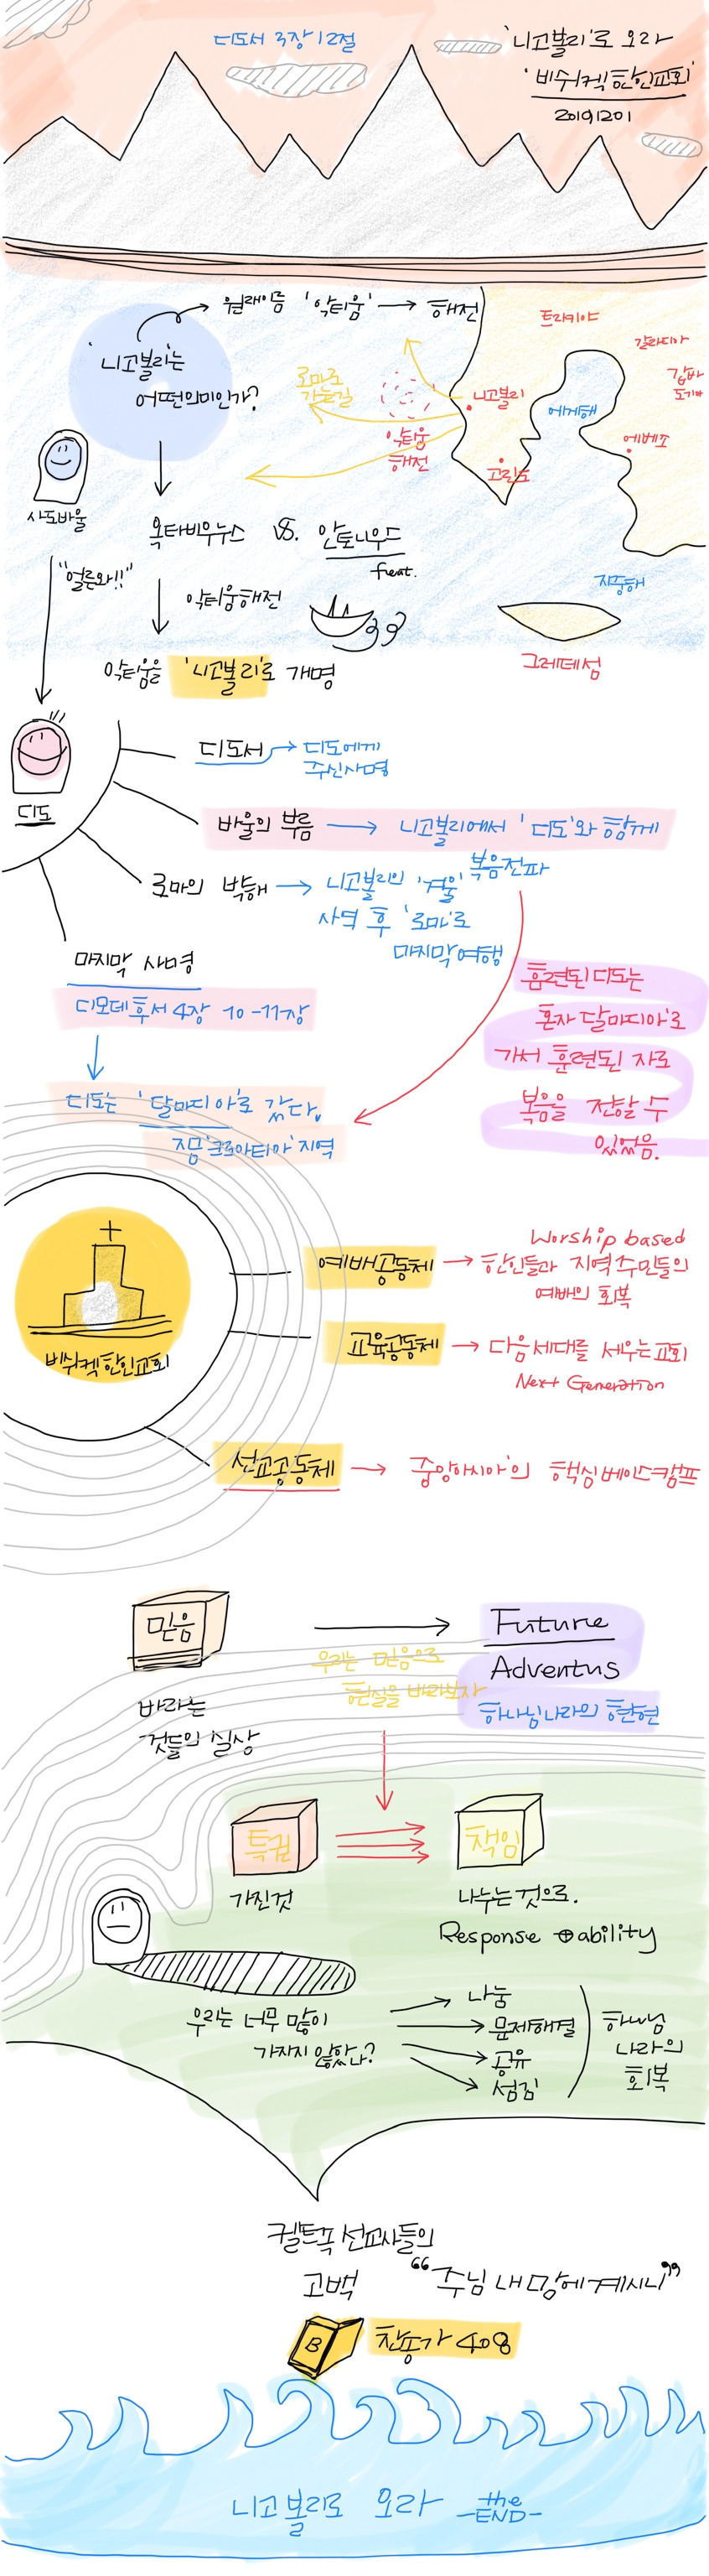 디도서 3장 12절
'니고볼리'로 오라
'비쉬켁한인교회'
20191201
원래이름 '악티움' → 해전
'니고볼리'는
어떤의미인가?
트라키아
갈라디아
갑바
도기아
로마로
가는길
니고볼리
에게해
악티움
해전
고린도
에베소
사도바울
옥타비우누스 VS. 안토니우드
feat.
"얼른와!!"
악티움해전
지중해
악티움을 '니고볼리'로 개명
그레데섬
디도
디도서 → 디도에게
주신사명
바울의 부름 → 니고볼리에서 '디도'와 함께
복음전파
로마의 박해 → 니고볼리의 '겨울'
사역 후 '로마'로
마지막여행
마지막 사명
디모데후서 4장 10-11장
훈련된 디도는
혼자 달마디아'로
가서 훈련된 자로
복음을 전할 수
있었음.
디도는 '달마디아'로 갔다.
지금 '크로아티아' 지역
비쉬켁한인교회
예배공동체 → Worship based
한인들과 지역주민들의
예배의 회복
교육공동체 → 다음세대를 세우는교회
Next Generation
선교공동체 → 중앙아시아'의 핵심베이스캠프
믿음
바라는
것들의 실상
우리는 믿음으로
현실을 바라보자
Future
Adventus
하나님나라의 현현
특권
가진것
책임
나누는것으로.
Response ⊕ ability
우리는 너무 많이
가지지 않았나?
나눔
문제해결
공유
섬김
하나님
나라의
회복
켈트족 선교사들의
고백 "주님 내 맘에 계시니"
B
찬송가 408
니고볼리로 오라 -the END-